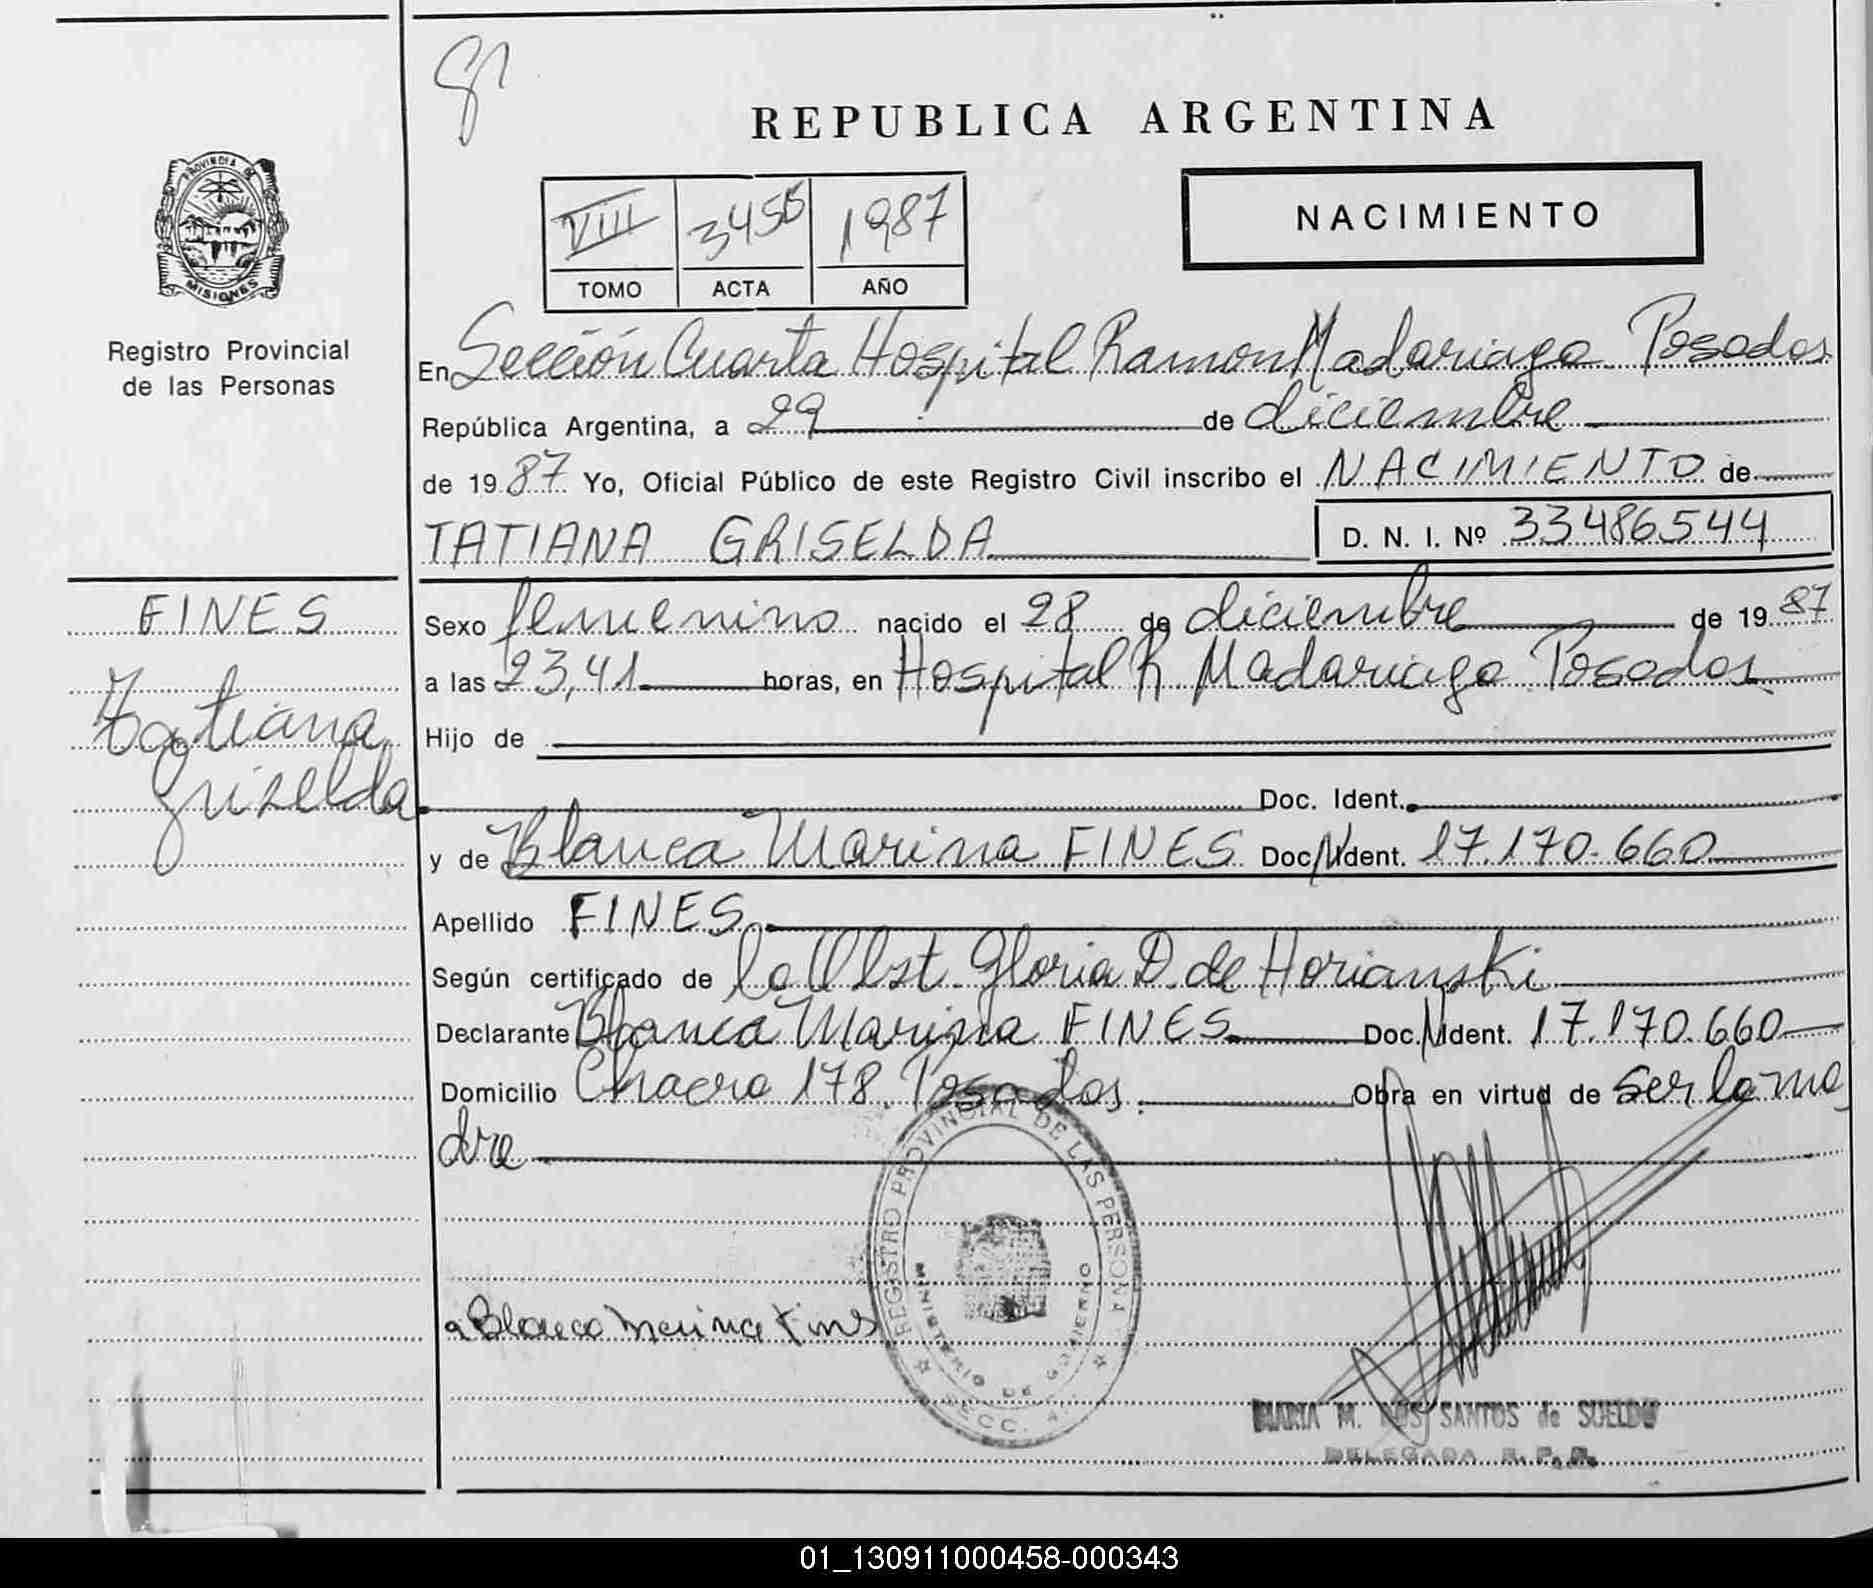 REPUBLICA ARGENTINA
PROVINCIA DE
MISIONES
Registro Provincial
de las Personas
VIII 3455 1987
TOMO ACTA AÑO
NACIMIENTO
En Sección Cuarta Hospital Ramon Madariaga Posadas
República Argentina, a 29 de diciembre
de 1987 Yo, Oficial Público de este Registro Civil inscribo el NACIMIENTO de
TATIANA GRISELDA D. N. I. Nº 33486544
FINES
Tatiana
Griselda
Sexo femenino nacido el 28 de diciembre de 1987
a las 23,41 horas, en Hospital R Madariaga Posadas
Hijo de
Doc. Ident.
y de Blanca Marina FINES Doc. Ident. 17.170.660
Apellido FINES
Según certificado de la Obst. Gloria D. de Horianski
Declarante Blanca Marina FINES Doc. Ident. 17.170.660
Domicilio Chacra 178 Posadas Obra en virtud de ser la ma
dre
REGISTRO PROVINCIAL DE LAS PERSONAS
MINISTERIO DE GOBIERNO
SECC. 4
Blanca Marina Fines
MARIA M. DOS SANTOS de SUELDO
DELEGADA R. P. P.
01_130911000458-000343